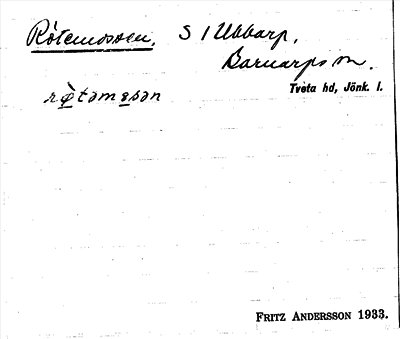 Rötemossen, S 1 Ubbarp,
Barnarps sn.
Tveta hd, Jönk. l.
rø̀təmɷsən
FRITZ ANDERSSON 1933.